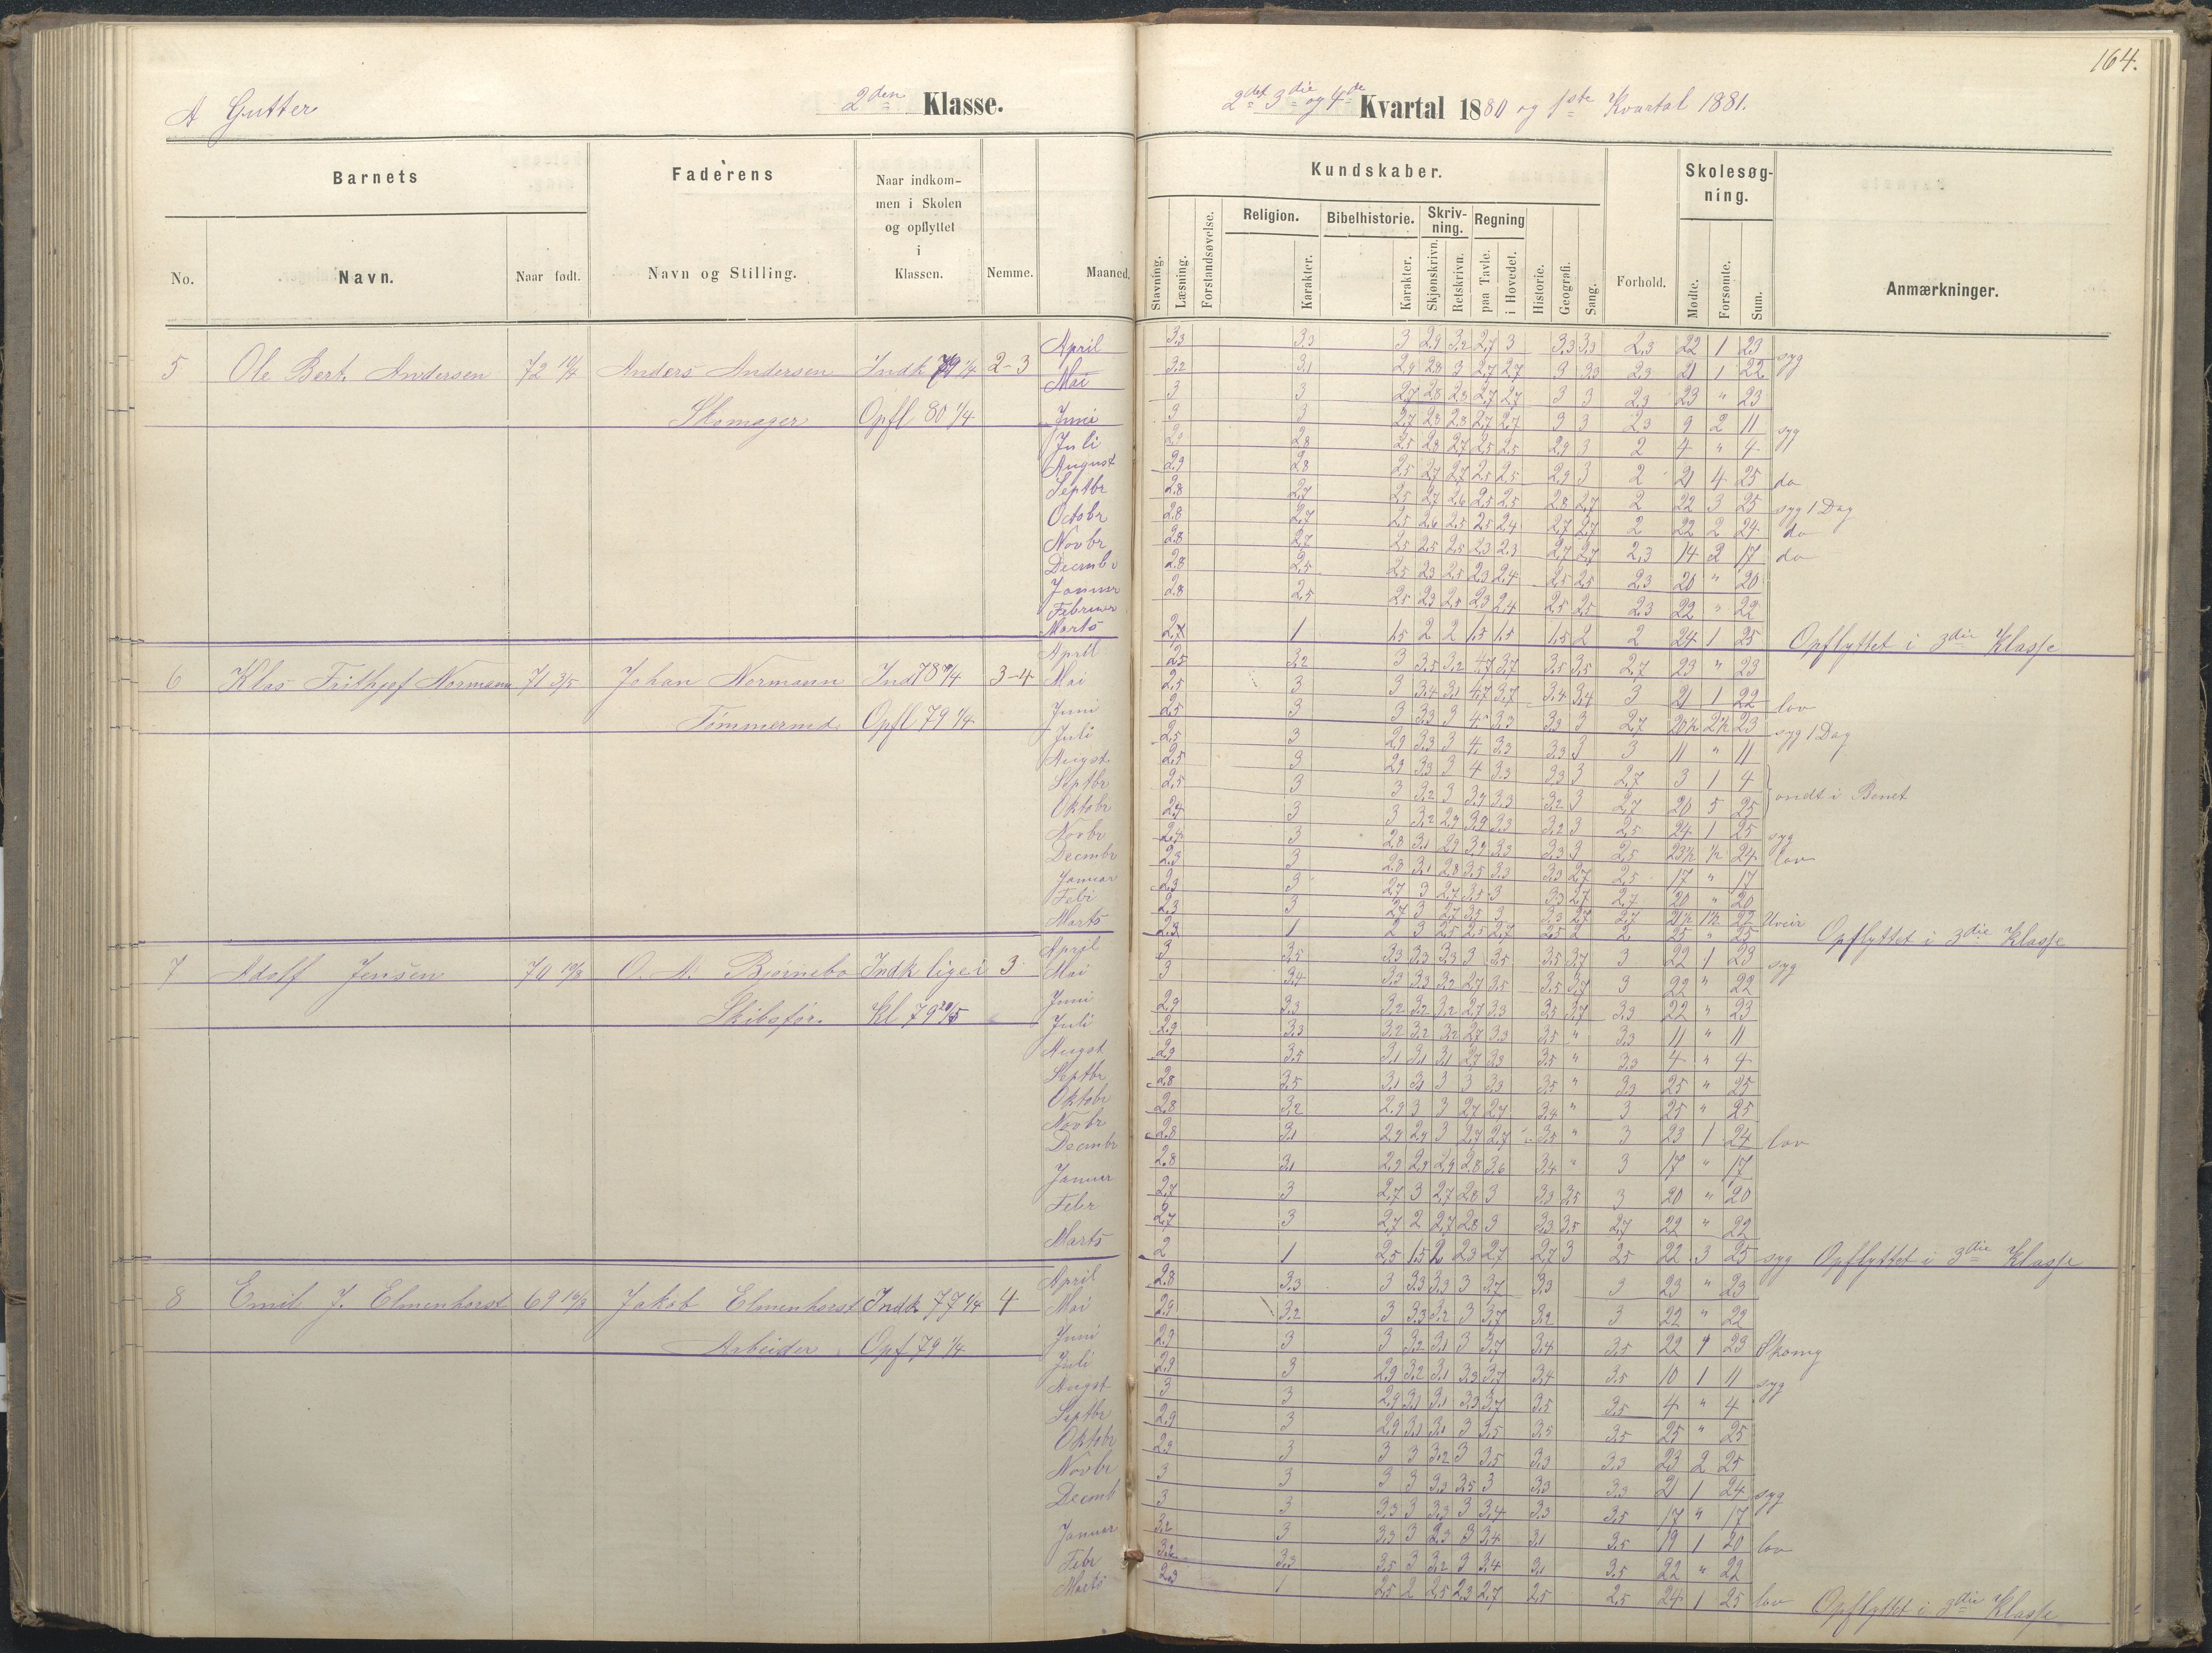 164.
A Gutter 2den Klasse. 2det 3die og 4de Kvartal 1880 og 1ste Kvartal 1881.
Barnets Faderens Naar indkommen i Skolen og opflyttet i Klassen. Nemme. Maaned. Kundskaber. Forhold. Skolesøgning. Anmærkninger.
No. Navn. Naar født. Navn og Stilling.
Stavning. Læsning. Forstandsøvelse. Religion. Karakter. Bibelhistorie. Karakter. Skrivning. Skjønskrivn. Retskrivn. Regning paa Tavle. i Hovedet. Historie. Geografi. Sang. Mødte. Forsømte. Sum.
5 Ole Bert. Andersen 72 10/4 Anders Andersen Indk 79 1/4 2-3
Skomager Opfl 80 1/4
April 3,3 3,3 3 2,9 3,2 2,7 3 3,3 3,3 2,3 22 1 23 syg
Mai 3,2 3,1 2,9 2,8 3 2,7 2,7 3 3,3 2,3 21 1 22
Juni 3 3 2,7 2,8 2,3 2,7 2,7 3 3 2,3 23 " 23
Juli 3 3 2,7 2,8 2,3 2,7 2,7 3 3 2,3 9 2 11 syg
August 2,9 2,8 2,5 2,8 2,7 2,5 2,5 2,9 3 2 4 " 4
Septbr 2,9 2,8 2,5 2,7 2,7 2,5 2,5 2,9 3 2 21 4 25 do
Octobr 2,8 2,7 2,5 2,7 2,6 2,5 2,5 2,8 2,7 2 22 3 25 syg 1 Dag
Novbr 2,8 2,7 2,5 2,6 2,5 2,5 2,4 2,7 2,7 2 22 2 24 do
Decmbr 2,8 2,7 2,5 2,5 2,5 2,3 2,3 2,7 2,7 2,3 14 2 17 do
Januar 2,8 2,5 2,5 2,3 2,5 2,3 2,4 2,5 2,5 2,3 20 " 20
Februar 2,8 2,5 2,5 2,3 2,5 2,3 2,4 2,5 2,5 2,3 22 " 22
Marts 2,7 1 1,5 2 2 1,5 1,5 1,5 2 2 24 1 25 Opflyttet i 3die Klasse
6 Klas Frithjof Normann 71 3/5 Johan Normann Ind 78 1/4 3-4
Tømmermd. Opfl 79 1/4
April 2,5 3,2 3 3,5 3,2 4,7 3,7 3,5 3,5 2,7 23 " 23
Mai 2,5 3 3 3,4 3,1 4,7 3,7 3,4 3,4 3 21 1 22 lov
Juni 2,5 3 3 3,3 3 4 3,3 3,3 3 2,7 20½ 2½ 23 syg 1 Dag
Juli 2,5 3 2,9 3,3 3 4 3,3 3,3 3 3 11 " 11
Augst. 2,5 3 2,9 3,3 3 4 3,3 3,3 3 2,7 3 1 4
Septbr 2,5 3 3 3,2 3 3,9 3,3 3,2 3 2,7 20 5 25 ondt i Benet
Oktobr 2,4 3 3 3,2 2,9 3,9 3,3 3,2 3 2,5 24 1 25 syg
Novbr 2,4 3 2,8 3,1 2,9 3,9 3,3 3,3 3 2,5 23½ ½ 24 lov
Decmbr 2,3 3 2,8 3,1 2,8 3,5 3,3 3,3 2,7 2,5 17 " 17
Januar 2,3 3 2,7 3 2,7 3,5 3 3,3 2,7 2,7 20 " 20
Febr 2,3 3 2,7 3 2,7 3,5 3 3,3 2,7 2,7 21½ 1½ 22 Uveir
Marts 2,3 1 2 3 2,5 2,5 2,7 2,5 2 2 25 " 25 Opflyttet i 3die Klasse
7 Adolf Jensen 70 10/3 O. A. Bjørnebo Indk lige i 3
Skibsfør. Kl 79 20/5
April 3 3,5 3,3 3,3 3,3 3 3,5 3,5 3,7 3 22 1 23 syg
Mai 3 3,4 3,3 3,3 3,2 2,7 3,5 3,5 3,7 3 22 " 22
Juni 2,9 3,3 3,2 3,2 3,2 2,7 3,3 3,5 3,7 3,3 22 " 23
Juli 2,9 3,3 3,2 3,2 3,2 2,7 3,3 3,5 " 3,3 11 " 11
Augst 2,9 3,5 3,1 3,1 3,1 2,7 3,3 3,5 " 3,3 4 " 4
Septbr 2,8 3,5 3,1 3,1 3 3 3,3 3,5 " 3,3 25 " 25
Oktobr 2,8 3,2 2,9 3 3 2,7 2,7 3,4 " 3 25 " 25
Novbr 2,8 3,1 2,9 2,9 3 2,7 2,7 3,5 " 3 23 1 24 lov
Decmbr 2,8 3,1 2,9 2,9 2,9 2,8 3,6 3,4 " 3 17 " 17
Januar 2,7 3 2,7 3 2,7 2,8 3 3,3 3,5 3 20 " 20
Febr 2,7 3 2,7 2 2,7 2,8 3 3,3 3,5 2,7 22 " 22
Marts 2 1 2,5 1,5 2 2,3 2,7 2,7 3 2,5 22 3 25 syg Opflyttet i 3die Klasse
8 Emil J. Elmenhorst 69 10/3 Jakob Elmenhorst Indk 77 1/4 4
Arbeider Opf 79 1/4
April 2,8 3,3 3 3,3 3,3 3 3,7 3,3 3 23 " 23
Mai 2,9 3,2 3 3,3 3,2 3 3,7 3,2 3 22 " 22
Juni 2,9 3 3 3,2 3,1 3 3,7 3,4 3,5 22 1 23 Skomg
Juli 2,9 3 2,9 3,2 3,1 3,3 3,7 3,4 3,5 10 1 11 syg
Augst 3 3 2,9 3,1 3,1 3,3 3,7 3,5 3,5 4 " 4
Septbr 2,9 3 2,9 3,1 3,1 3 3,5 3,5 3,5 25 " 25
Oktobr 2,9 3 3 3 3,2 3 3,5 3,3 3,3 23 2 25
Novbr 3 3 3 3 3,3 3,5 3 3,3 3,3 21 1 24 syg
Decmb 3 3 3,3 3 3,3 3 3,4 3,3 3,5 17 " 17
Januar 3,2 3 3,3 3 2,3 3 3,4 3,1 3,5 19 1 20 lov
Febr 3,2 3,3 3,5 3 3,2 3 3,4 3,1 3,5 22 " 22
Marts 2,3 1 2,5 2 2,5 2,3 2,7 2,5 2,5 24 1 25 lov Opflyttet i 3die Klasse